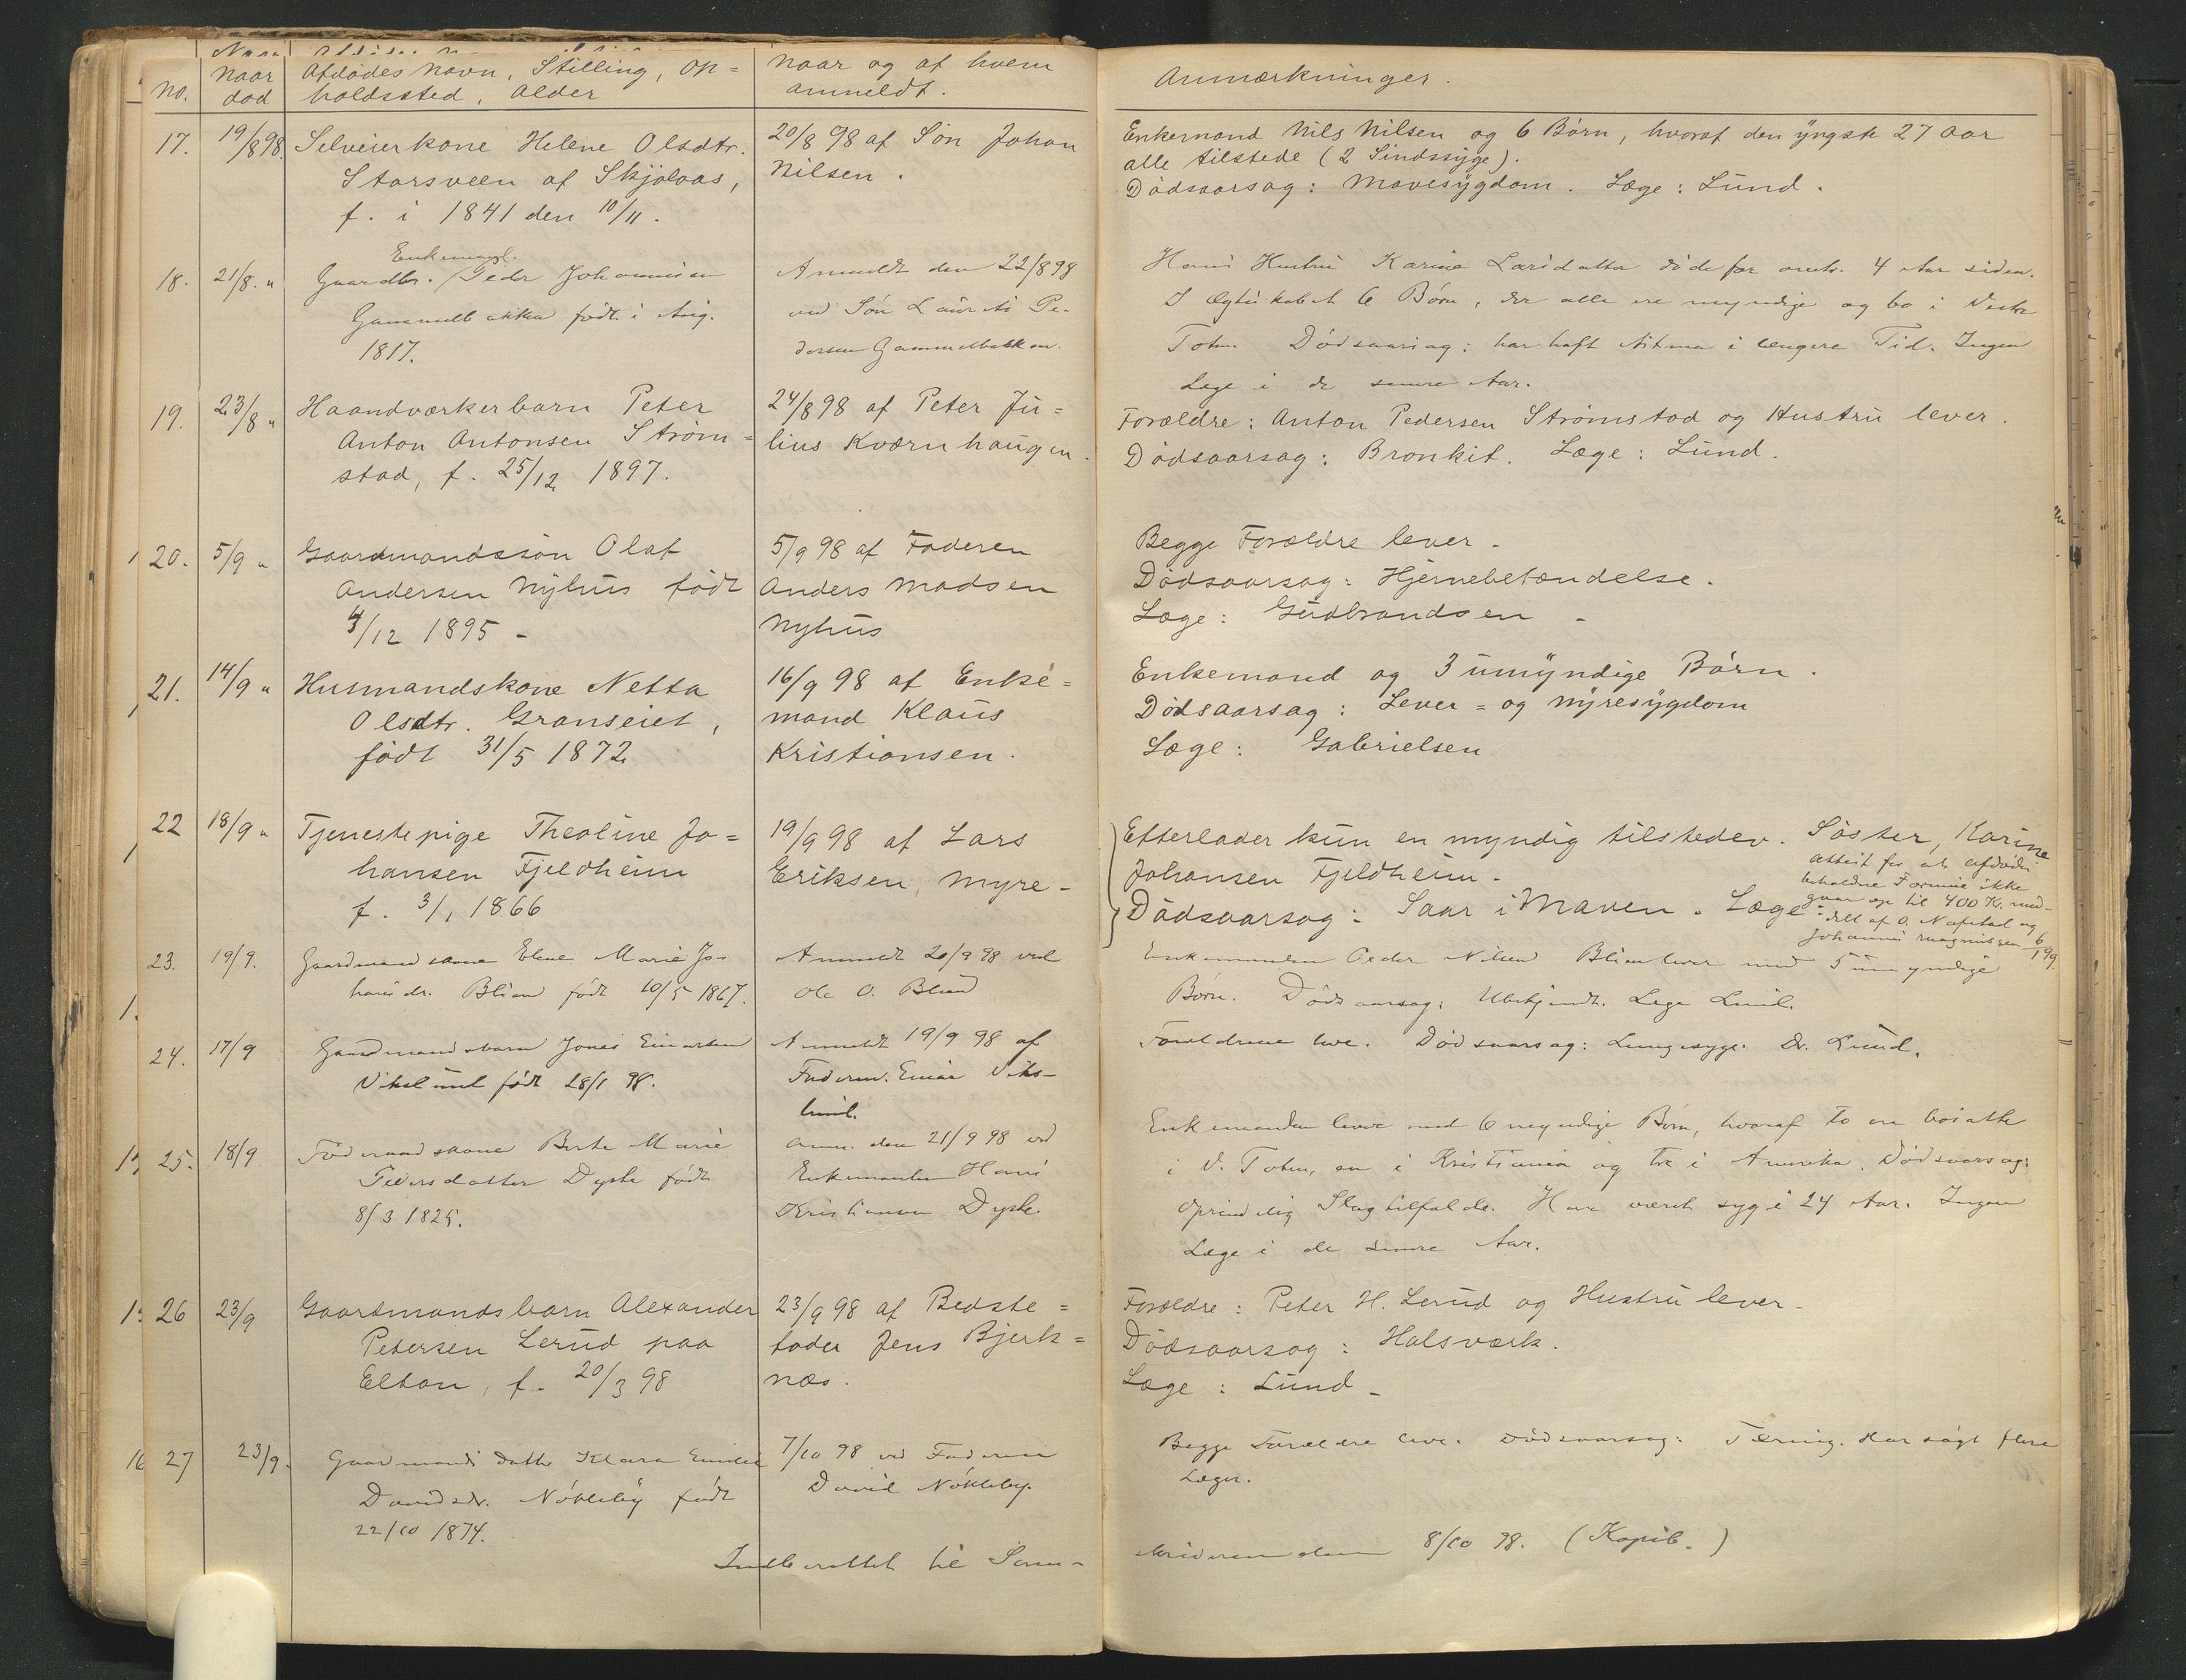 no.
naar død
Afdødes navn, Stilling, Op=
holdssted, Alder
naar og af hvem
anmeldt.
Anmærkninger.
17.
19/8 98.
Selveierkone Helene Olsdtr.
Starsveen af Skjølaas,
f. i 1841 den 10/11.
20/8 98 af Søn Johan
Nilsen.
Enkemand Nils Nilsen og 6 Børn, hvoraf den yngste 27 aar
alle tilstede (2 Sindssyge).
Dødsaarsag: Mavesygdom. Læge: Lund.
18.
21/8. "
Enkemand.
Gaardbr. Peder Johannesen
Gammelbakken født i Aug.
1817.
Anmeldt den 22/8 98
ved Søn Laurits Pe-
dersen Gammelbakken.
Hans Hustru Karine Larsdatter døde for omtr. 4 Aar siden.
I Ægteskabet 6 Børn, der alle ere myndige og bo i Vestre
Toten. Dødsaarsag: har haft Astma i længere Tid. Ingen
Læge i de senere Aar.
19.
23/8 "
Haandværkerbarn Peter
Anton Antonsen Strøm=
stad, f. 25/12 1897.
24/8 98 af Peter Ju=
lius Kværnhaugen.
Forældre: Anton Pedersen Strømstad og Hustru lever.
Dødsaarsag: Bronkit. Læge: Lund.
20.
5/9 "
Gaardmandssøn Olaf
Andersen Nyhus født
4/12 1895 -
5/9 98 af Faderen
Anders Madsen
Nyhus
Begge Forældre lever -
Dødsaarsag: Hjernebetændelse.
Læge: Gudbrandsen -
21.
14/9 "
Husmandskone Netta
Olsdtr. Granseiet,
født 31/5 1872
16/9 98 af Enke=
mand Klaus
Kristiansen.
Enkemand og 3 umyndige Børn.
Dødsaarsag: Lever= og nyresygdom
Læge: Gabrielsen
22
18/9 "
Tjenestepige Theoline Jo=
hansen Fjeldheim
f. 3/1 1866
19/9 98 af Lars
Eriksen, Myre -
Efterlader kun en myndig tilstedev. Søster, Karine
Johansen Fjeldheim -
Dødsaarsag: Saar i Maven. Læge:
Attest for at afdødes
beholdne Formue ikke
gaar op til 400 Kr. med-
delt af O. Næfstad og
Johannes Magnussen 6/1 99.
23.
19/9.
Gaardmandskone Elene Marie Jo-
hansdr. Blien født 10/5 1867.
Anmeldt 20/9 98 ved
Ole O. Blien
Enkemanden Peder Nilsen Blien lever med 5 umyndige
Børn. Dødsaarsag: Ubekjendt. Læge Lund.
24.
17/9
Gaardmandsbarn Jonas Einarsen
Vikslund født 28/1 98.
Anmeldt 19/9 98 af
Faderen. Einar Viks-
lund.
Forældrene leve. Dødsaarsag: Lungesyge. Dr. Lund.
25.
18/9
Føderaadskone Berte Marie
Pedersdatter Dyste født
8/3 1825.
Anm. den 21/9 98 ved
Enkemanden Hans
Kristiansen Dyste
Enkemanden lever med 6 myndige Børn, hvoraf to ere bosatte
i V. Toten, en i Kristiania og tre i Amerika. Dødsaarsag:
oprindelig Slagtilfælde. Har været syg i 24 Aar. Ingen
Læge i de senere Aar.
26
23/9
Gaardmandsbarn Alexander
Petersen Lerud paa
Elton, f. 20/3 98
23/9 98 af Bedste=
fader Jens Bjerk=
næs.
Forældre: Peter H. Lerud og Hustru lever -
Dødsaarsag: Halsværk.
Læge: Lund -
27
23/9.
Gaardmandsdatter Klara Emilie
Davidsdr. Nøkleby født
22/10 1874.
7/10 98 ved Faderen
David Nøkleby.
Begge Forældre leve. Dødsaarsag: Tæring. Har søgt flere
Læger.
Indberettet til Soren-
skriveren den 8/10 98. (Kopib.)